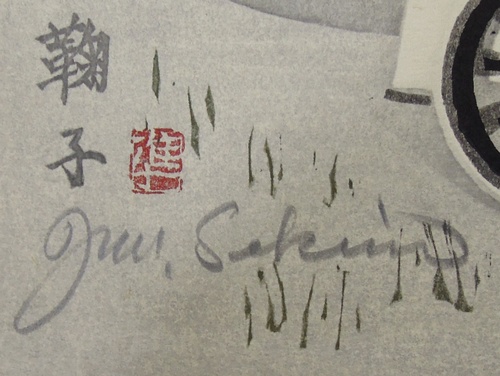 鞠子
Jun. Sekino